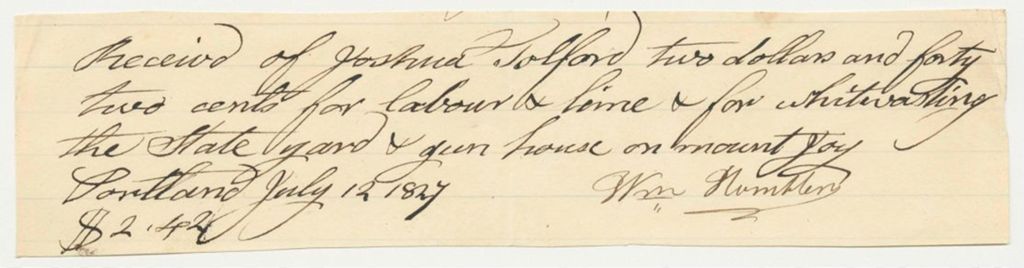 Receivd of Joshua Tolford two dollars and forty
two cents for labour & lime & for whitwasting
the State yard & gun house on mount Joy
Portland July 12 1827
Wm
$2.42